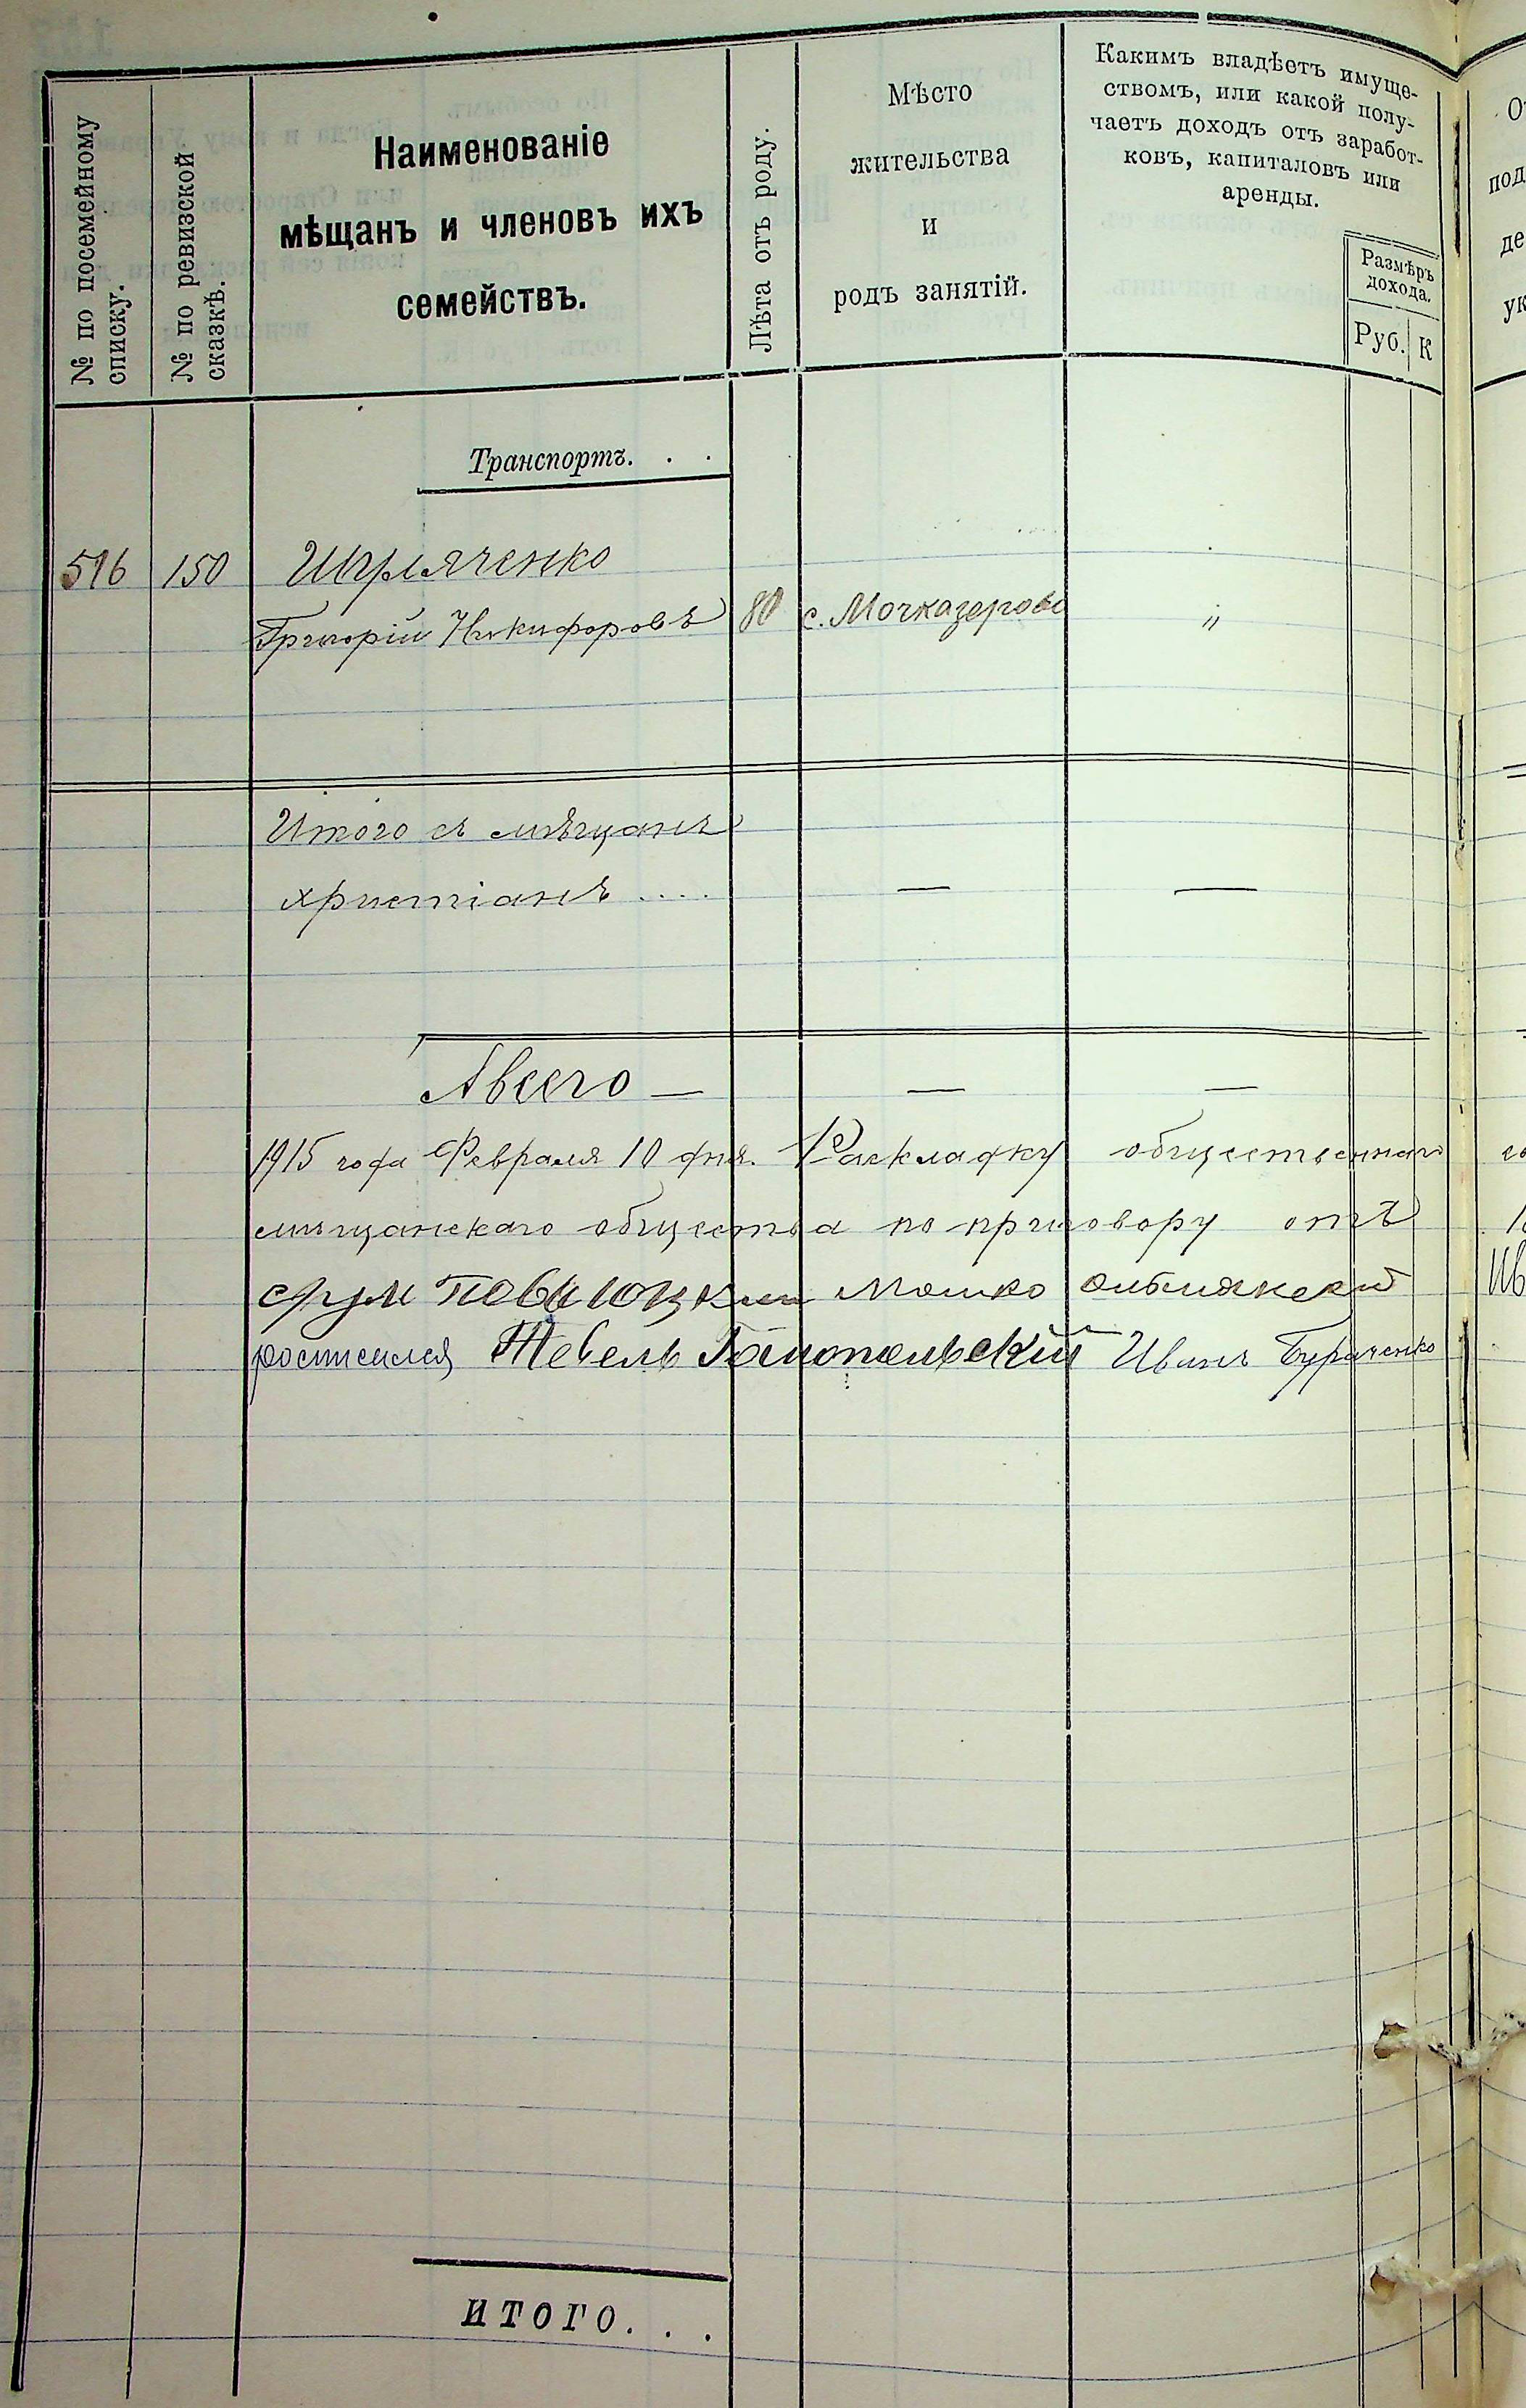 № по посемейному
списку.
№ по ревизской
сказкѣ.
Наименованіе
мѣщанъ и членовъ ихъ
семействъ.
Лѣта отъ роду.
Мѣсто
жительства
и
родъ занятій.
Какимъ владѣетъ имуще-
ствомъ, или какой полу-
чаетъ доходъ отъ заработ-
ковъ, капиталовъ или
аренды.
Размѣръ
дохода.
Руб. К
Транспортъ. . .
516 150
Григорій Никифоровъ 80 с. Мочказерово "
Итого съ мѣщанъ
христіанъ .... — —
Авсего — — —
1915 года Февраля 10 дня. Раскладку общественнаго
мѣщанскаго общества по приговору отъ
Мошко
росписился Тевель Иванъ Бураченко
ИТОГО. . .